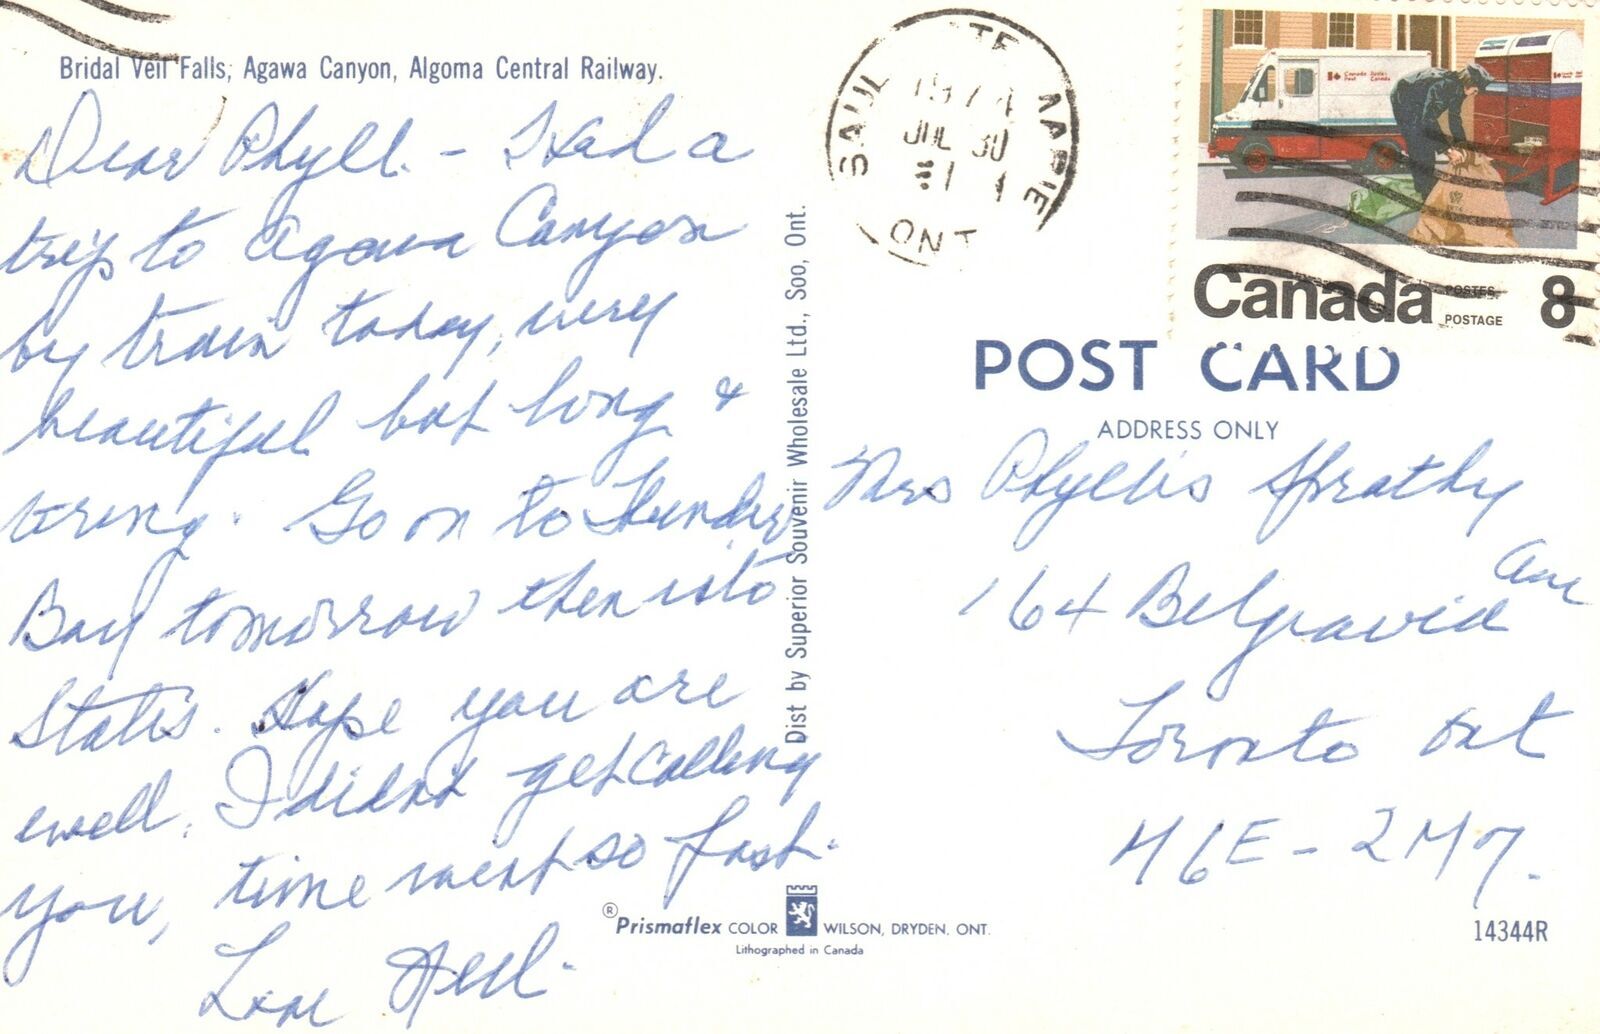 Bridal Veil Falls, Agawa Canyon, Algoma Central Railway.
Dear Phyll. - Had a
trip to Agawa Canyon
by train today, very
beautiful but long &
tiring. Go on to Thunder
Bay tomorrow then into
States. Hope you are
well. I didnt get calling
you, time went so fast.
Love
Dist by Superior Souvenir Wholesale Ltd., Soo, Ont.
SAULT STE MARIE
1974
JUL 30
ONT
Canada Post Postes Canada
Canada POSTES POSTAGE 8
POST CARD
ADDRESS ONLY
Mrs Phyllis Sprathy
164 Belgravia Ave
Toronto Ont
M6E-2M7.
® Prismaflex COLOR WILSON, DRYDEN, ONT.
Lithographed in Canada
14344R